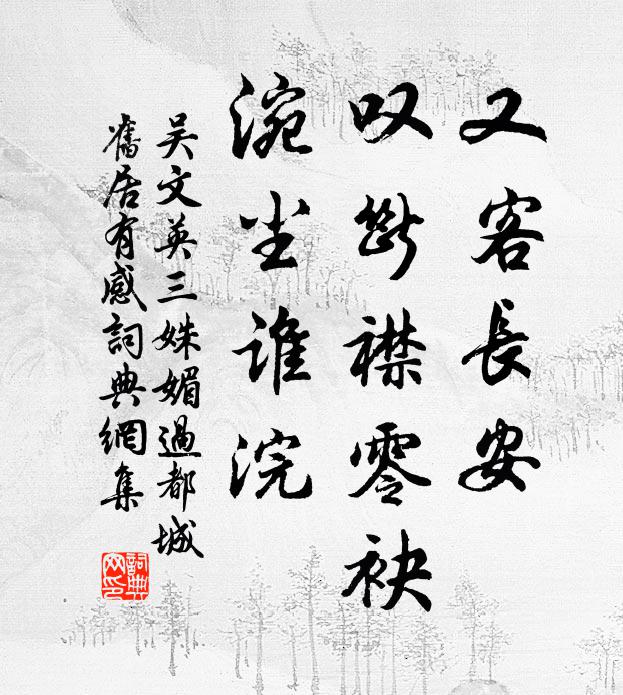 又客長安
叹斷襟零袂
涴尘谁浣
吴文英三姝媚過都城
舊居有感詞典網集
詞典网印